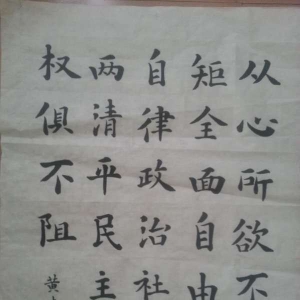 从心所欲不
矩全面自由
自律政治社
两清平民主
权俱不阻
黄